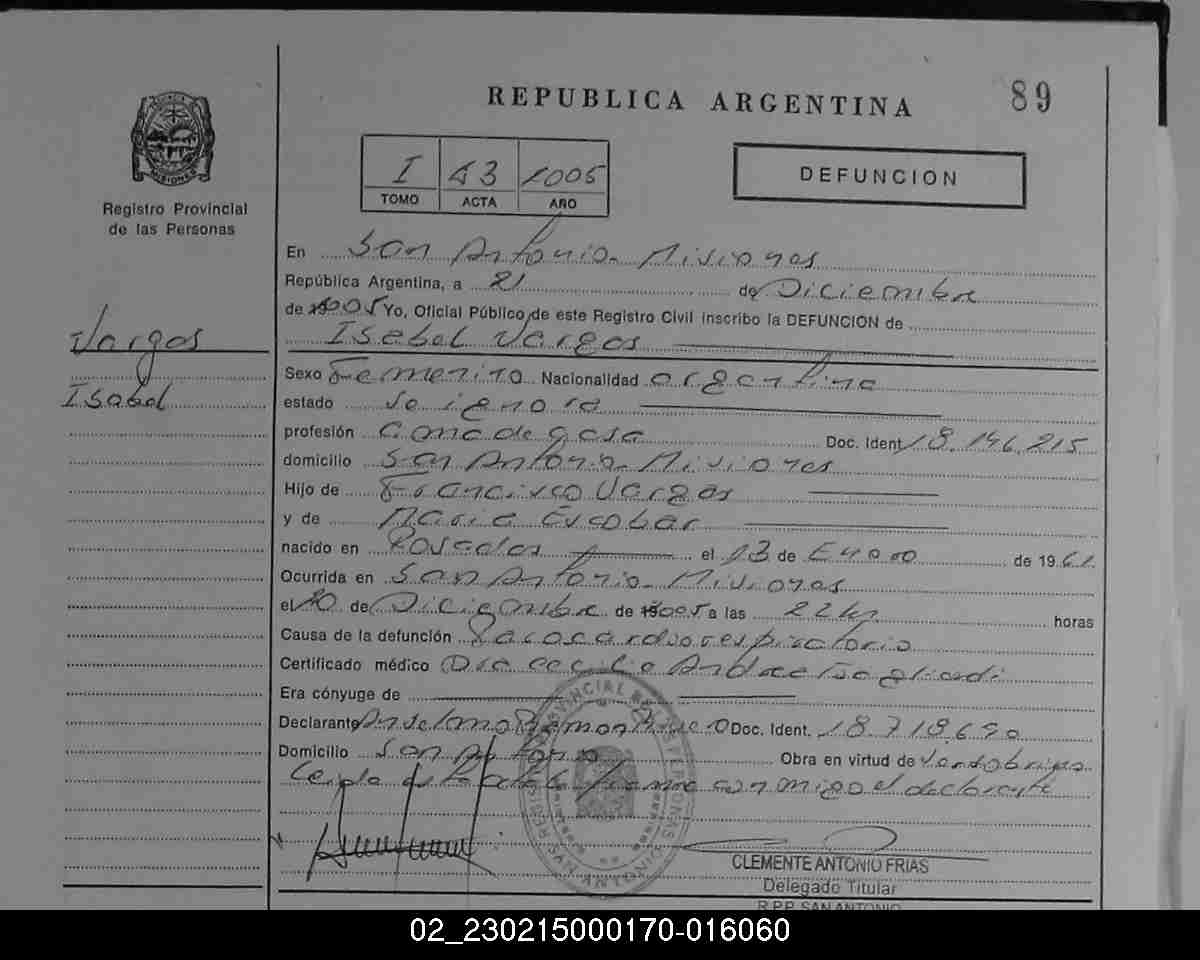 REPUBLICA ARGENTINA
89
Registro Provincial
de las Personas
I 43 2005
TOMO ACTA AÑO
DEFUNCION
Vargas
Isabel
En San Antonio - Misiones
República Argentina, a 21 de Diciembre
de 2005 Yo, Oficial Público de este Registro Civil inscribo la DEFUNCION de
Isabel Vargas
Sexo Femenino Nacionalidad argentina
estado se ignora
profesión ama de casa Doc. Ident. 18.146.215
domicilio San Antonio - Misiones
Hijo de Francisco Vargas
y de Maria Escobar
nacido en Posadas el 13 de Enero de 1961
Ocurrida en San Antonio - Misiones
el 20 de Diciembre de 2005 a las 22 hs horas
Causa de la defunción Paro cardiorespiratorio
Certificado médico Dra Cecilia Andrea
Era cónyuge de
Declarante Anselmo Ramon Doc. Ident. 18.718.690
Domicilio San Antonio Obra en virtud de
Leida el Acta la firma con migo el declarante
CLEMENTE ANTONIO FRIAS
Delegado Titular
R.P.P. SAN ANTONIO
02_230215000170-016060